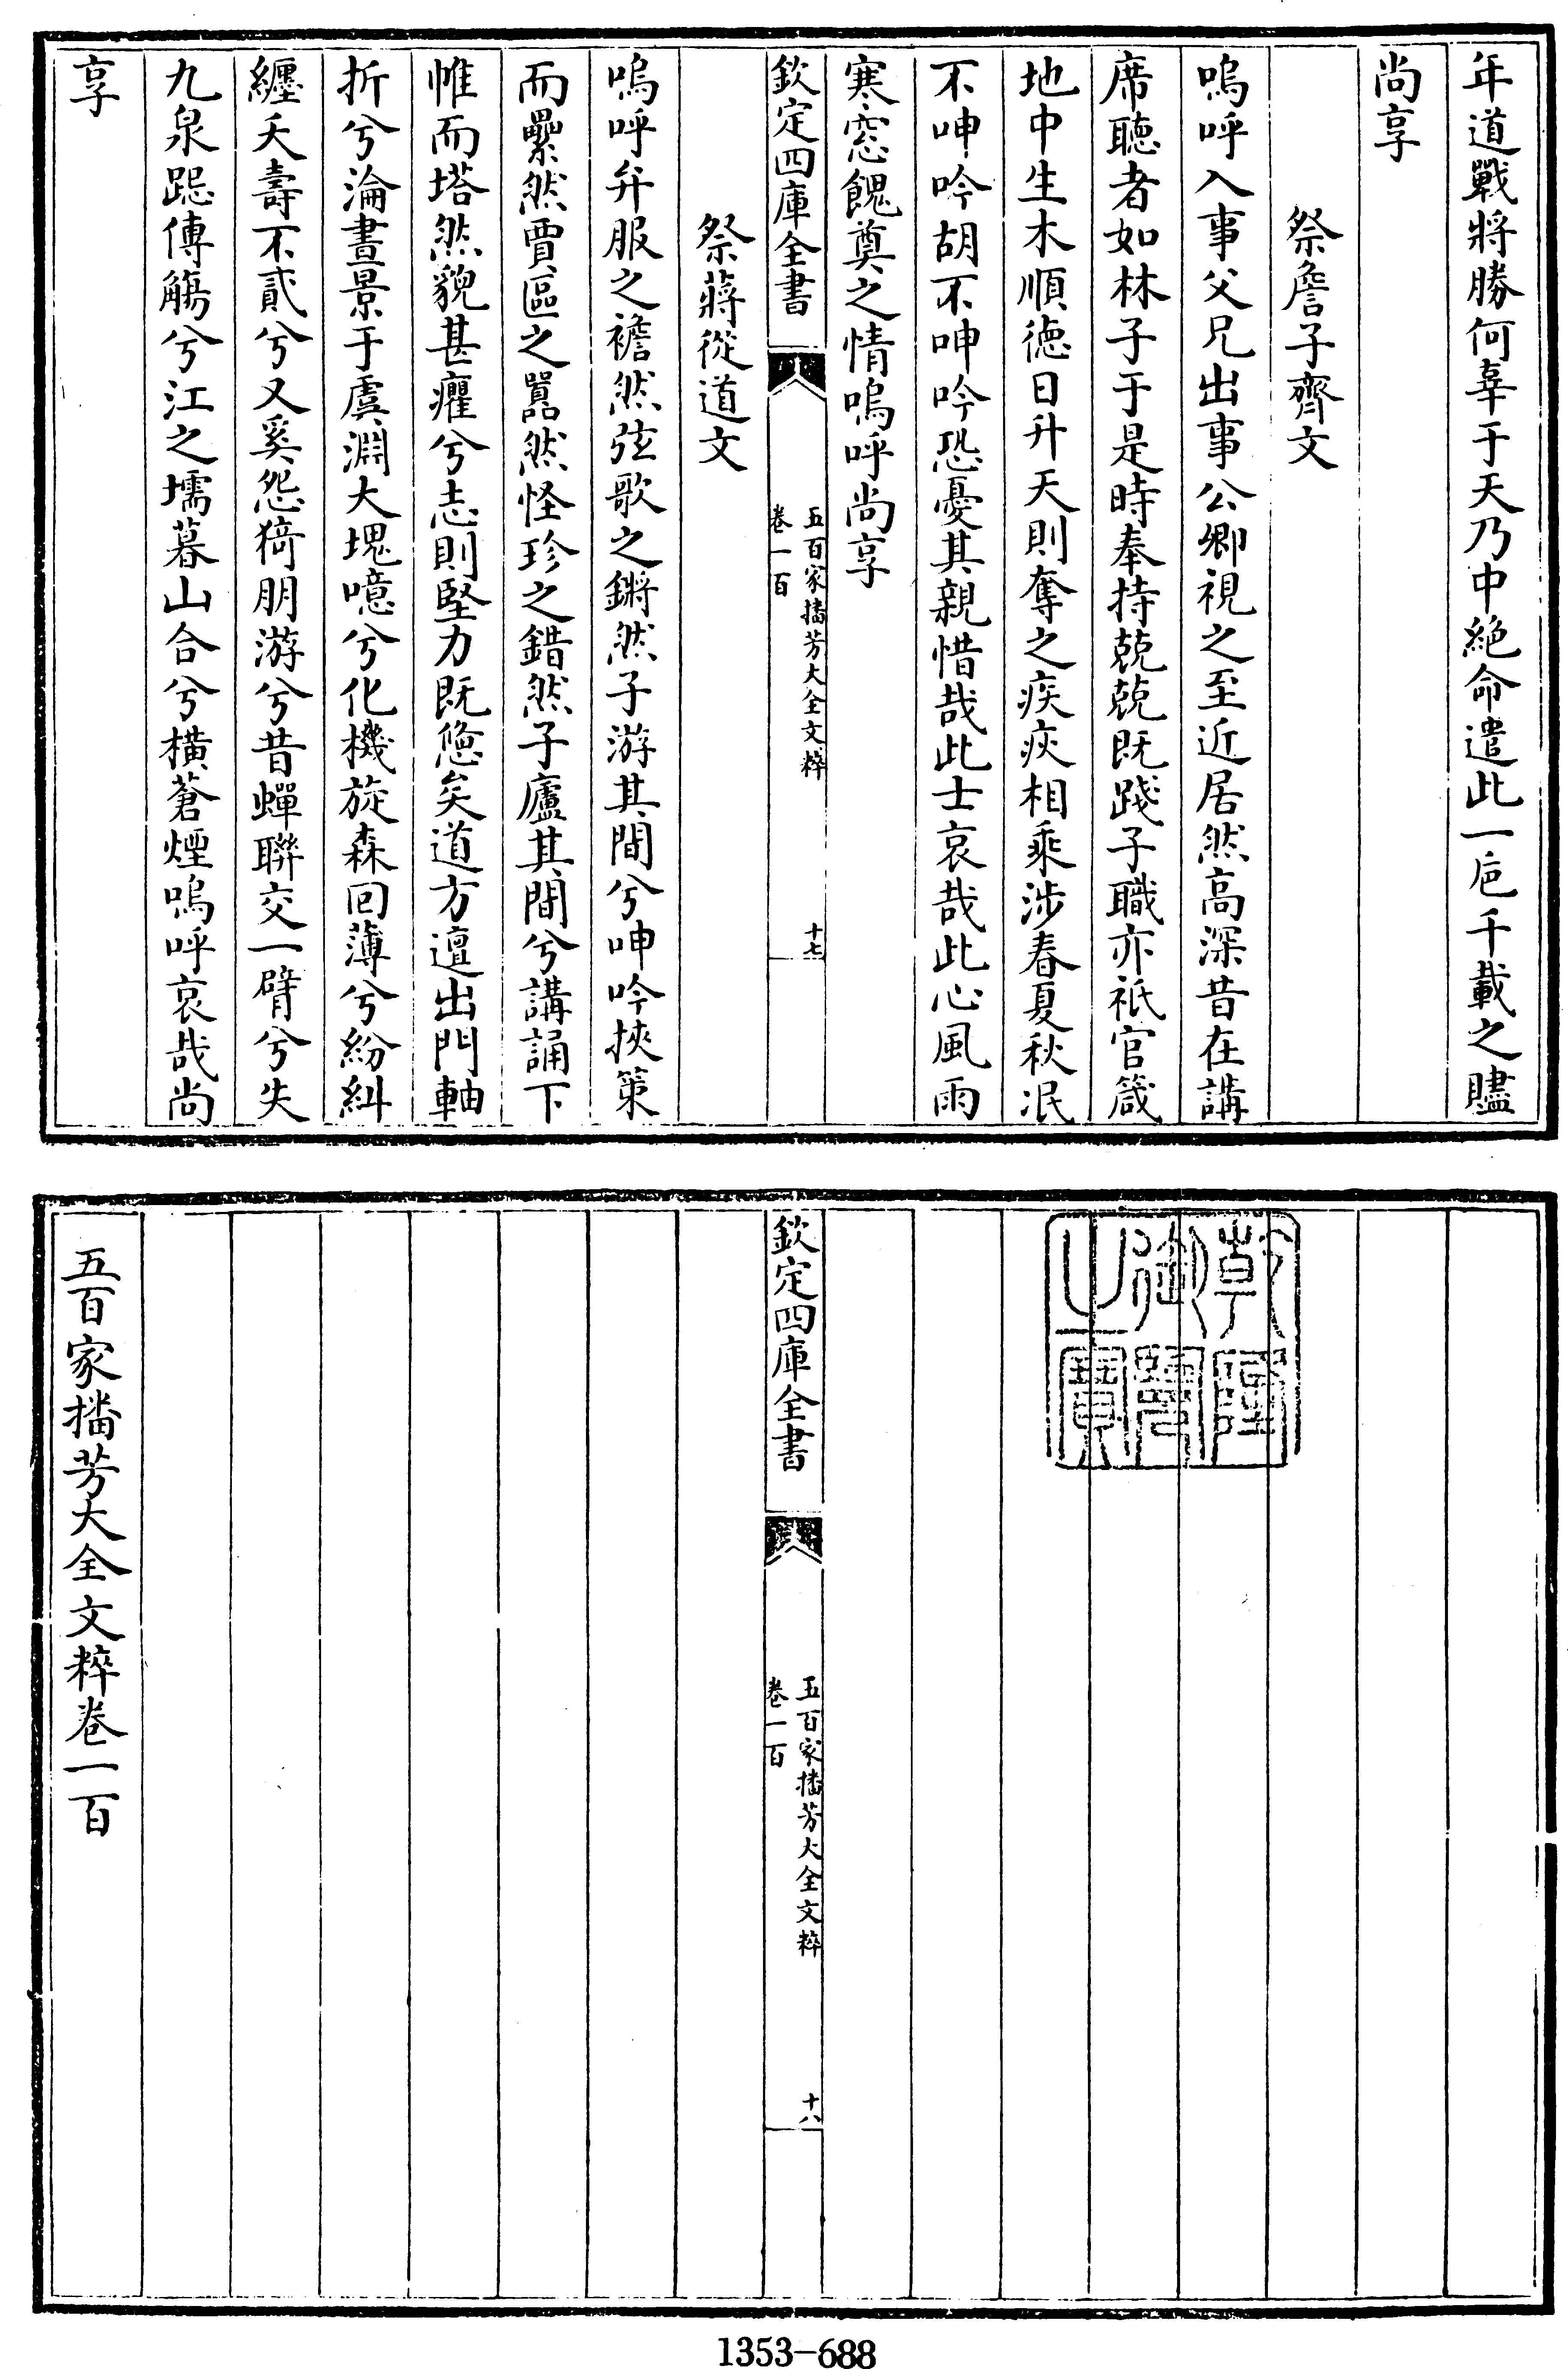 年道戰將勝何辜于天乃中絶命遣此一卮千載之贐
尚享
祭詹子齊文
嗚呼入事父兄出事公卿視之至近居然高深昔在講
席聽者如林子于是時奉持兢兢既踐子職亦祇官箴
地中生木順德日升天則奪之疾疢相乘涉春夏秋泯
不呻吟胡不呻吟恐憂其親惜哉此士哀哉此心風雨
寒窓餽奠之情嗚呼尚享
欽定四庫全書
五百家播芳大全文粹
卷一百
十七
祭蔣從道文
嗚呼弁服之襜然弦歌之鏘然子游其間兮呻吟挾策
而纍然賈區之嚚然怪珍之錯然子廬其間兮講誦下
帷而塔然貌甚癯兮志則堅力既憊矣道方邅出門軸
折兮淪晝景于虞淵大塊噫兮化機旋森回薄兮紛糾
纏夭壽不貳兮又奚怨猗朋游兮昔蟬聯交一臂兮失
九泉跽傳觴兮江之壖暮山合兮橫蒼煙嗚呼哀哉尚
享
乾隆御覽之寶
欽定四庫全書
五百家播芳大全文粹
卷一百
十八
五百家播芳大全文粹卷一百
1353-688